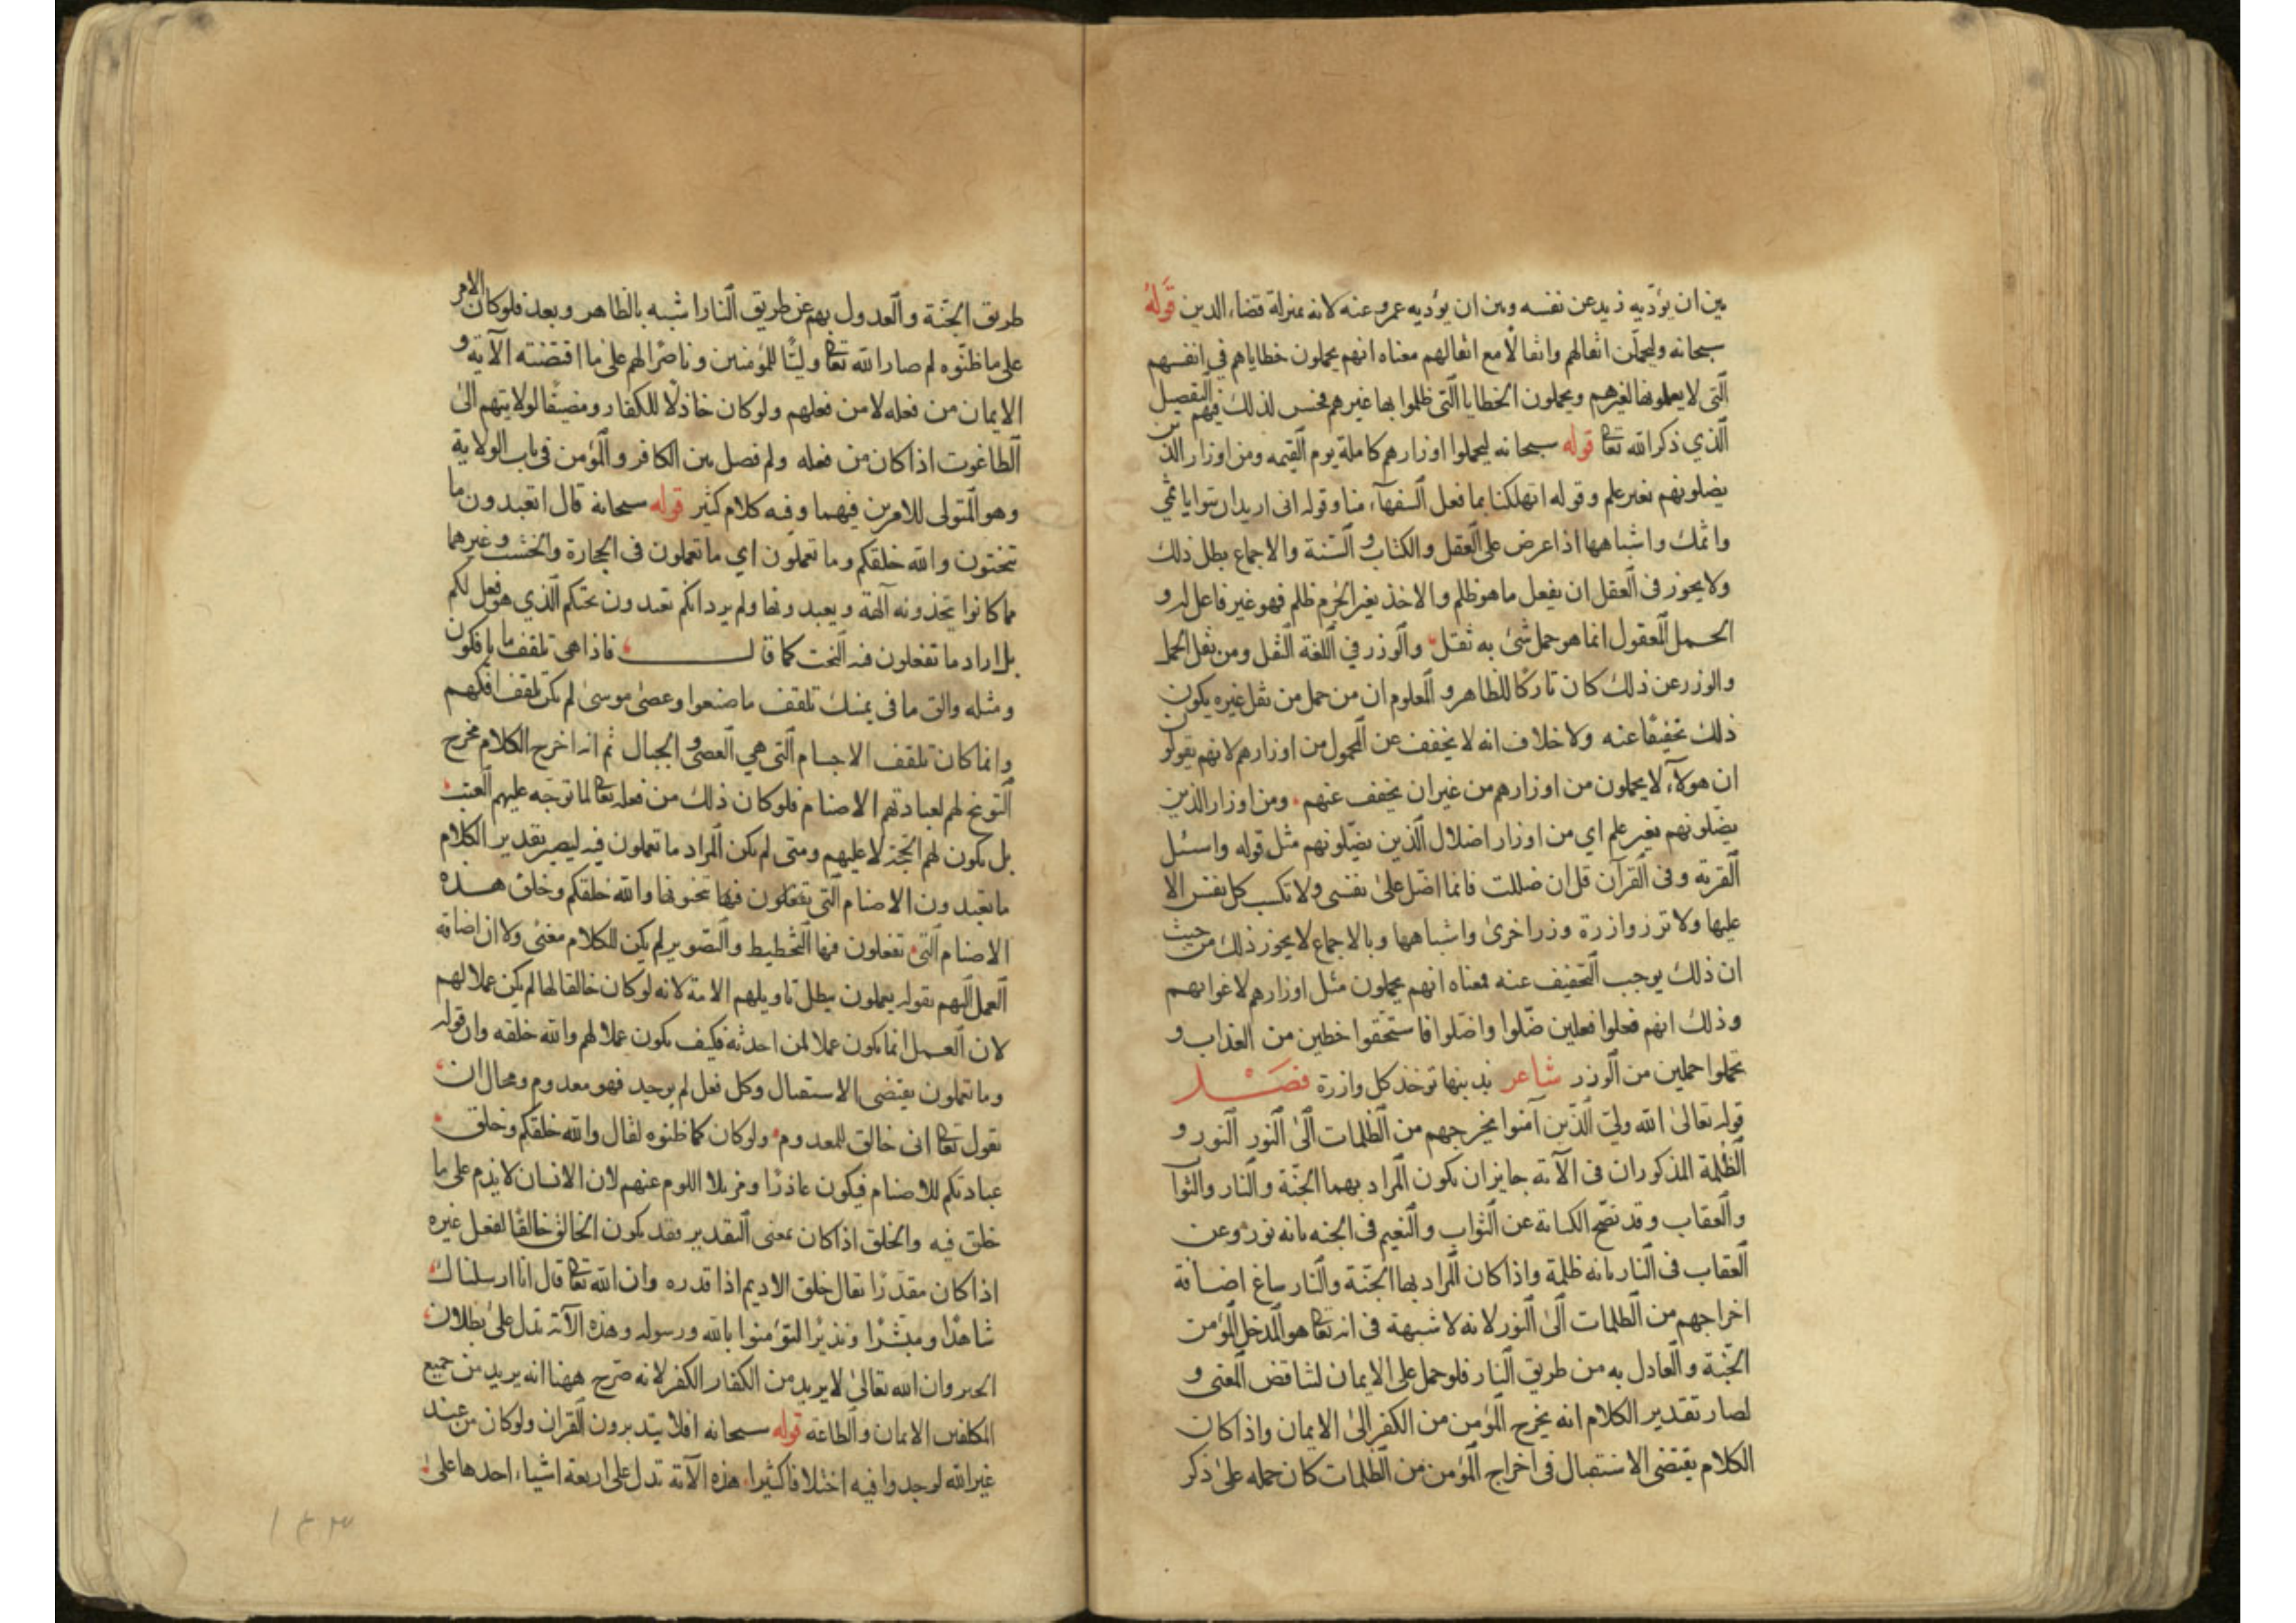 بين ان يؤدّيه زيد عن نفسه وبين ان يؤديه عمرو عنه لانه بمنزلة قضاء الدين قوله
سبحانه وليحملّن اثقالهم واثقالا مع اثقالهم معناه انهم يحملون خطاياهم في انفسهم
الّتى لا يعملونها لغيرهم ويحملون الخطايا الّتى ظلموا بها غيرهم فحسن لذلك فيهم التفصيل
الّذي ذكر الله تعا قوله سبحانه ليحملوا اوزارهم كاملة يوم القيمه ومن اوزار الذين
يضلونهم بغير علم وقوله اتهلكنا بما فعل السفهآء منا وقوله انى اريد ان تبوا باثمي
واثمك واشباهها اذا عرض على العقل والكتاب و السّنة والاجماع بطل ذلك
ولا يجوز فى العقل ان يفعل ما هو ظلم والاخذ بغير الجرم ظلم فهو غير فاعل له و
الحمل المعقول انما هو حمل شئ به ثقل والوزر في اللغة الثقل ومن نقل الحمل
والوزر عن ذلك كان تاركًا للظاهر و المعلوم ان من حمل من ثقل غيره يكون
ذلك تخفيفًا عنه ولا خلاف انه لا يخفف عن المحمول من اوزارهم لانهم يقولون
ان هولآء لا يحملون من اوزارهم من غير ان يخفف عنهم ومن اوزار الذين
يضلونهم بغير علم اي من اوزار اضلال الّذين يضّلونهم مثل قوله واسئل
القرية وفى القرآن قل ان ضللت فانما اضل على نفسى ولا تكسب كل نفس الا
عليها ولا تزر وازرة وزر اخرى واشباهها وبالاجماع لا يجوز ذلك من حيث
ان ذلك يوجب التّخفيف عنه فمعناه انهم يحملون مثل اوزارهم لاغوائهم
وذلك انهم فعلوا فعلين ضّلوا واضّلوا فاستحقوا خطين من العذاب و
تحملوا حملين من الوزر شاعر بذنبها توخذ كل وازرة فصل
قوله تعالى الله وليّ الّذين آمنوا يخرجهم من الظلمات الى النّور النّور و
الظلمة المذكوران فى الآية جايز ان يكون المراد بهما الجنّة والنار والثوا
والعقاب وقد تصّح الكناية عن الثواب والنّعيم فى الجنه بانه نور وعن
العقاب فى النّار بانه ظلمة واذا كان المراد بها الجنّة والنّار ساغ اضافة
اخراجهم من الظلمات الى النّور لانه لا شبهة فى انه تعا هو المدخل المؤمن
الجنّة والعادل به من طريق النّار فلو حمل على الايمان لتناقض المعنى و
لصار تقدير الكلام انه يخرج المؤمن من الكفر الى الايمان واذا كان
الكلام يقتضى الاستقبال فى اخراج المؤمن من الظلمات كان حمله على ذكر
طريق الجّنة والعدول بهم عن طريق النّار اشبه بالظاهر وبعد فلو كان الامر
على ما ظنّوه لم صار الله تعا وليًّا للمؤمنين وناصرًا لهم على ما اقتضته الآية و
الايمان من فعله لا من فعلهم ولو كان خاذلًا للكفار ومضيفًا لولايتهم الى
الطاغوت اذا كان من فعله ولم فصل بين الكافر والمؤمن فى باب الولاية
وهو المتولى للامرين فيهما وفيه كلام كثير قوله سبحانه قال اتعبدون ما
تنحتون والله خلقكم وما تعملون اي ما تعملون فى الحجارة والخشب وغيرهما
مما كانوا يتخذونه آلهة ويعبدونها ولم يرد انكم تعبدون نحتكم الّذي هو فعل لكم
بل اراد ما تفعلون فيه النحت كما قال فاذا هى تلقف ما يافكون
ومثله والق ما فى يمينك تلقف ما صنعوا وعصى موسى لم تكن تلقف افكهم
وانما كان تلقف الاجسام الّتى هي العصى و الحبال ثم انه اخرج الكلام مخرج
التوبيخ لهم لعبادتهم الاصنام فلو كان ذلك من فعله تعا لما توجّه عليهم العتب
بل يكون لهم الحجّة لا عليهم ومتى لم يكن المراد ما تعملون فيه ليصير تقدير الكلام
ما تعبدون الاصنام الّتى تفعلون فيها تنحتونها والله خلقكم وخلق هذه
الاصنام الّتى تفعلون فيها التّخطيط والتصوير لم يكن للكلام معنى ولا ان اضافه
العمل اليهم بقوله يعملون يبطل تاويلهم الامة لانه لو كان خالقا لها لم يكن عملا لهم
لان العمل انما يكون عملا لمن احدثه فكيف يكون عملا لهم والله خلقه وان قوله
وما تعملون يقتضى الاستقبال وكل فعل لم يوجد فهو معدوم ومحال ان
يقول تعا انى خالق للمعدوم ولو كان كما ظنوه لقال والله خلقكم وخلق
عبادتكم للاصنام فيكون عاذرًا ومزيلا اللوم عنهم لان الانسان لا يذم على ما
خلق فيه والخلق اذا كان بمعنى التقدير فقد يكون الخالق خالقًا لفعل غيره
اذا كان مقدرًا يقال خلق الاديم اذا قدره وان الله تعا قال انا ارسلناك
شاهدًا ومبشّرًا ونذيرًا لتؤمنوا بالله ورسوله وهذه الآية تدل على بطلان
الجبر وان الله تعالى لا يريد من الكفار الكفر لانه صّرح ههنا انه يريد من جميع
المكلفين الايمان والطاعة قوله سبحانه افلا يتدبرون القران ولو كان من عند
غير الله لوجدوا فيه اختلافا كثيرا هذه الآية تدل على اربعة اشياء احدها على
١٤٣